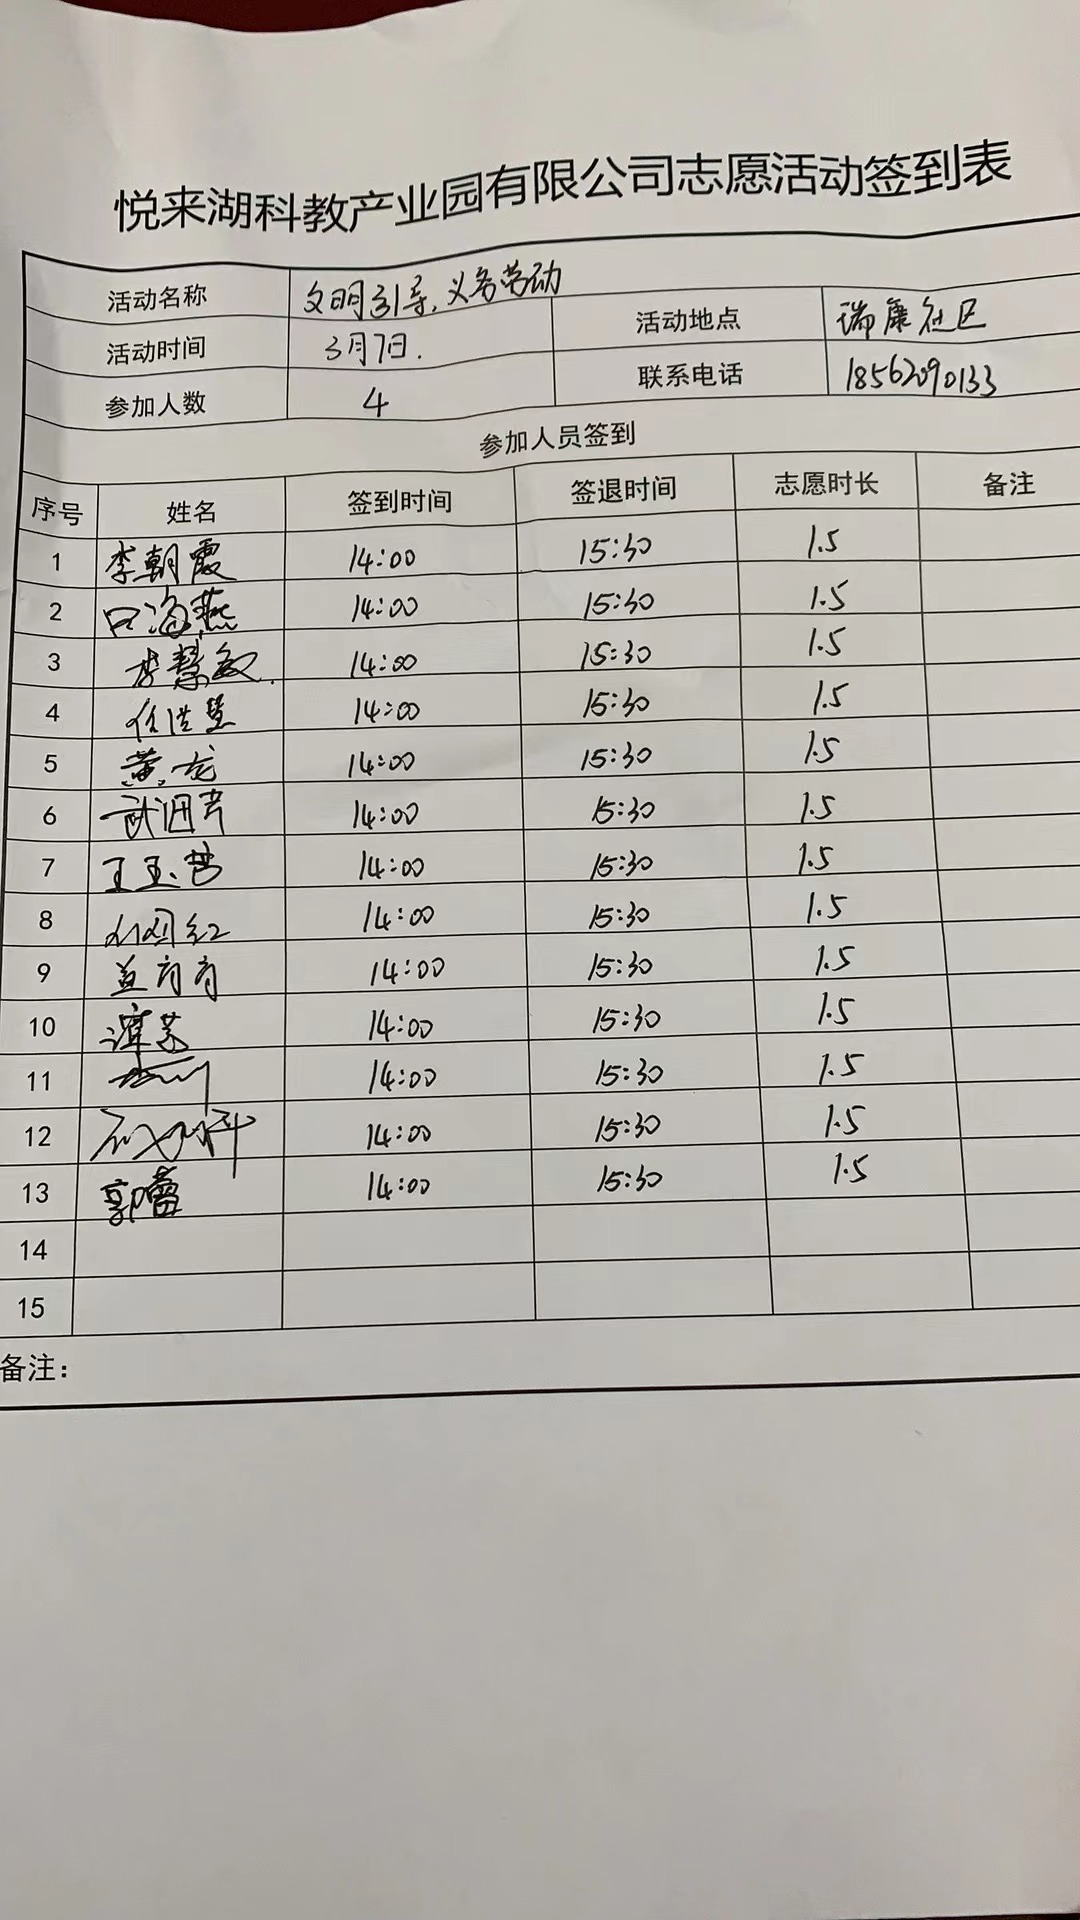 悦来湖科教产业园有限公司志愿活动签到表
活动名称 文明引导、义务劳动
活动时间 3月7日. 活动地点 瑞康社区
参加人数 4 联系电话 18562090133
参加人员签到
序号 姓名 签到时间 签退时间 志愿时长 备注
1 李朝霞 14:00 15:30 1.5
2 口海燕 14:00 15:30 1.5
3 李慧敏. 14:00 15:30 1.5
4 14:00 15:30 1.5
5 黄龙 14:00 15:30 1.5
6 14:00 15:30 1.5
7 14:00 15:30 1.5
8 14:00 15:30 1.5
9 14:00 15:30 1.5
10 14:00 15:30 1.5
11 14:00 15:30 1.5
12 14:00 15:30 1.5
13 郭蕾 14:00 15:30 1.5
14
15
备注：